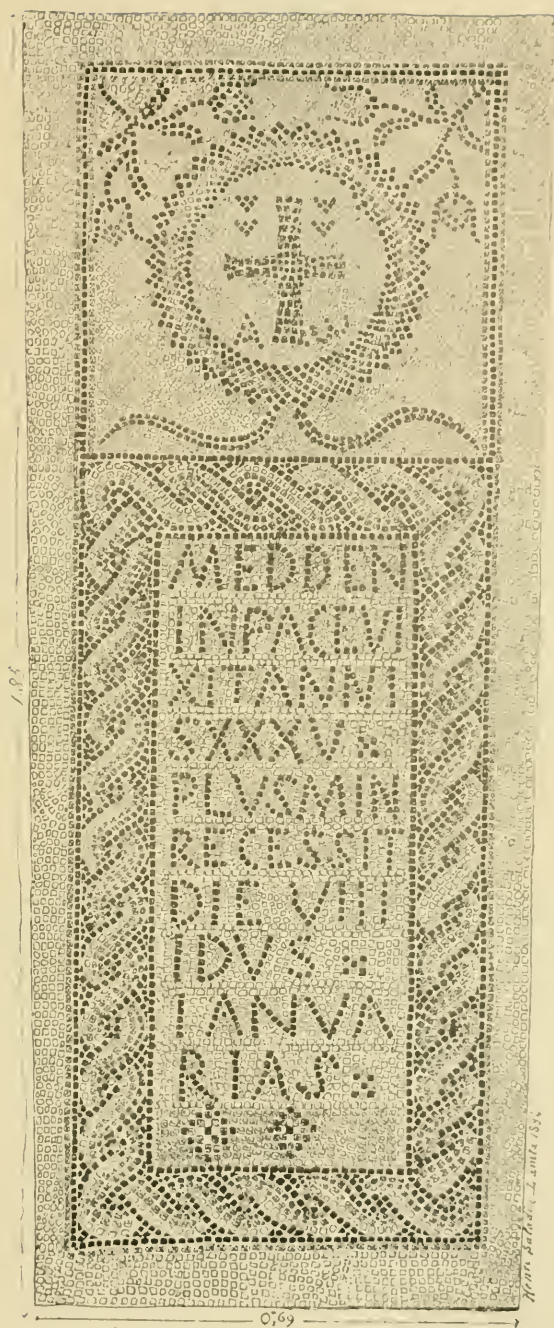 A
MEDDEN
INPACEVI
XITANNI
SXXXV
PLVSMIN
RECESSIT
DIE VIII
IDVS
IANVA
RIAS
1,85
Henri Saladin
0m,69